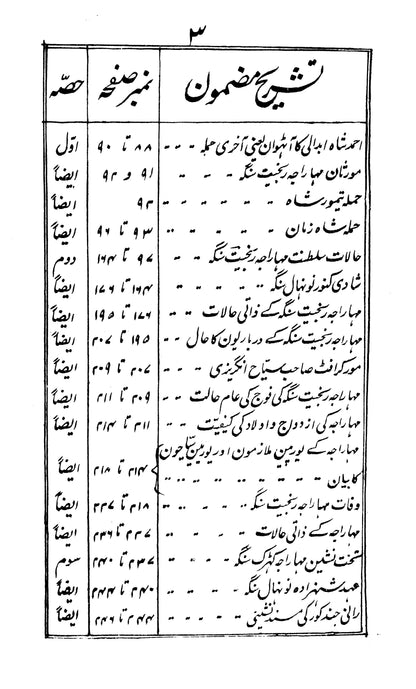 ۳
تشریح مضمون نمبر صفحہ حصّہ
احمد شاہ ابدالی کا آٹھواں یعنی آخری حملہ - - - ۸۸ تا ۹۰ اوّل
مورثان مہاراجہ رنجیت سنگہ - - - ۹۱ و ۹۲ ایضاً
حملہ تیمور شاہ - - - - - - ۹۳ ایضاً
حملہ شاہ زمان - - - - - ۹۳ تا ۹۶ ایضاً
حالات سلطنت مہاراجہ رنجیت سنگہ - - ۹۷ تا ۱۶۴ دوم
شادی کنور نونہال سنگہ - - - - - ۱۶۴ تا ۱۷۶ ایضاً
مہاراجہ رنجیت سنگہ کے ذاتی حالات - - - ۱۷۶ تا ۱۹۵ ایضاً
مہاراجہ رنجیت سنگہ کے درباریون کا حال - - ۱۹۵ تا ۲۰۷ ایضاً
مورکرافٹ صاحب سیّاح انگریزی - - - ۲۰۷ تا ۲۰۹ ایضاً
مہاراجہ رنجیت سنگہ کی فوج کی عام حالت - - ۲۰۹ تا ۲۱۱ ایضاً
مہاراجہ کی ازدواج و اولاد کی کیفیّت - - ۲۱۱ تا ۲۱۴ ایضاً
مہاراجہ کے یورپین ملازمون اور یورپین سیّاحون
کا بیان - - - - - - - ۲۱۴ تا ۲۱۸ ایضاً
وفات مہاراجہ رنجیت سنگہ - - - - - ۲۱۸ تا ۲۲۷ ایضاً
مہاراجہ کے ذاتی حالات - - - - - ۲۲۷ تا ۲۳۶ ایضاً
تخت نشین مہاراجہ کھڑک سنگہ - - - ۲۳۷ تا ۲۴۰ سوم
عہد شہزادہ نونہال سنگہ - - - - ۲۴۰ تا ۲۴۴ ایضاً
رانی چند کور کی مسند نشینی - - - - - ۲۴۴ تا ۲۴۶ ایضاً